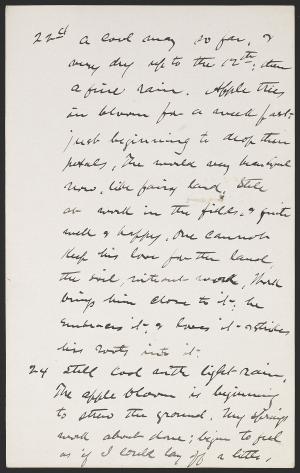 22d A cool May so far, &
very dry up to the 12th, then
a fine rain. Apple trees
in bloom for a week past
just beginning to drop their
petals, The world very beautiful
now, like fairy land, Still
at work in the fields, & quite
well & happy, One cannot
keep his love for the land,
the soil, without work, Work
brings him close to it; he
embraces it, & loves it & strikes
his roots into it.
24 Still cool with light rain,
The apple bloom is beginning
to strew the ground. My spring
work about done; begin to feel
as if I could lay off a little,